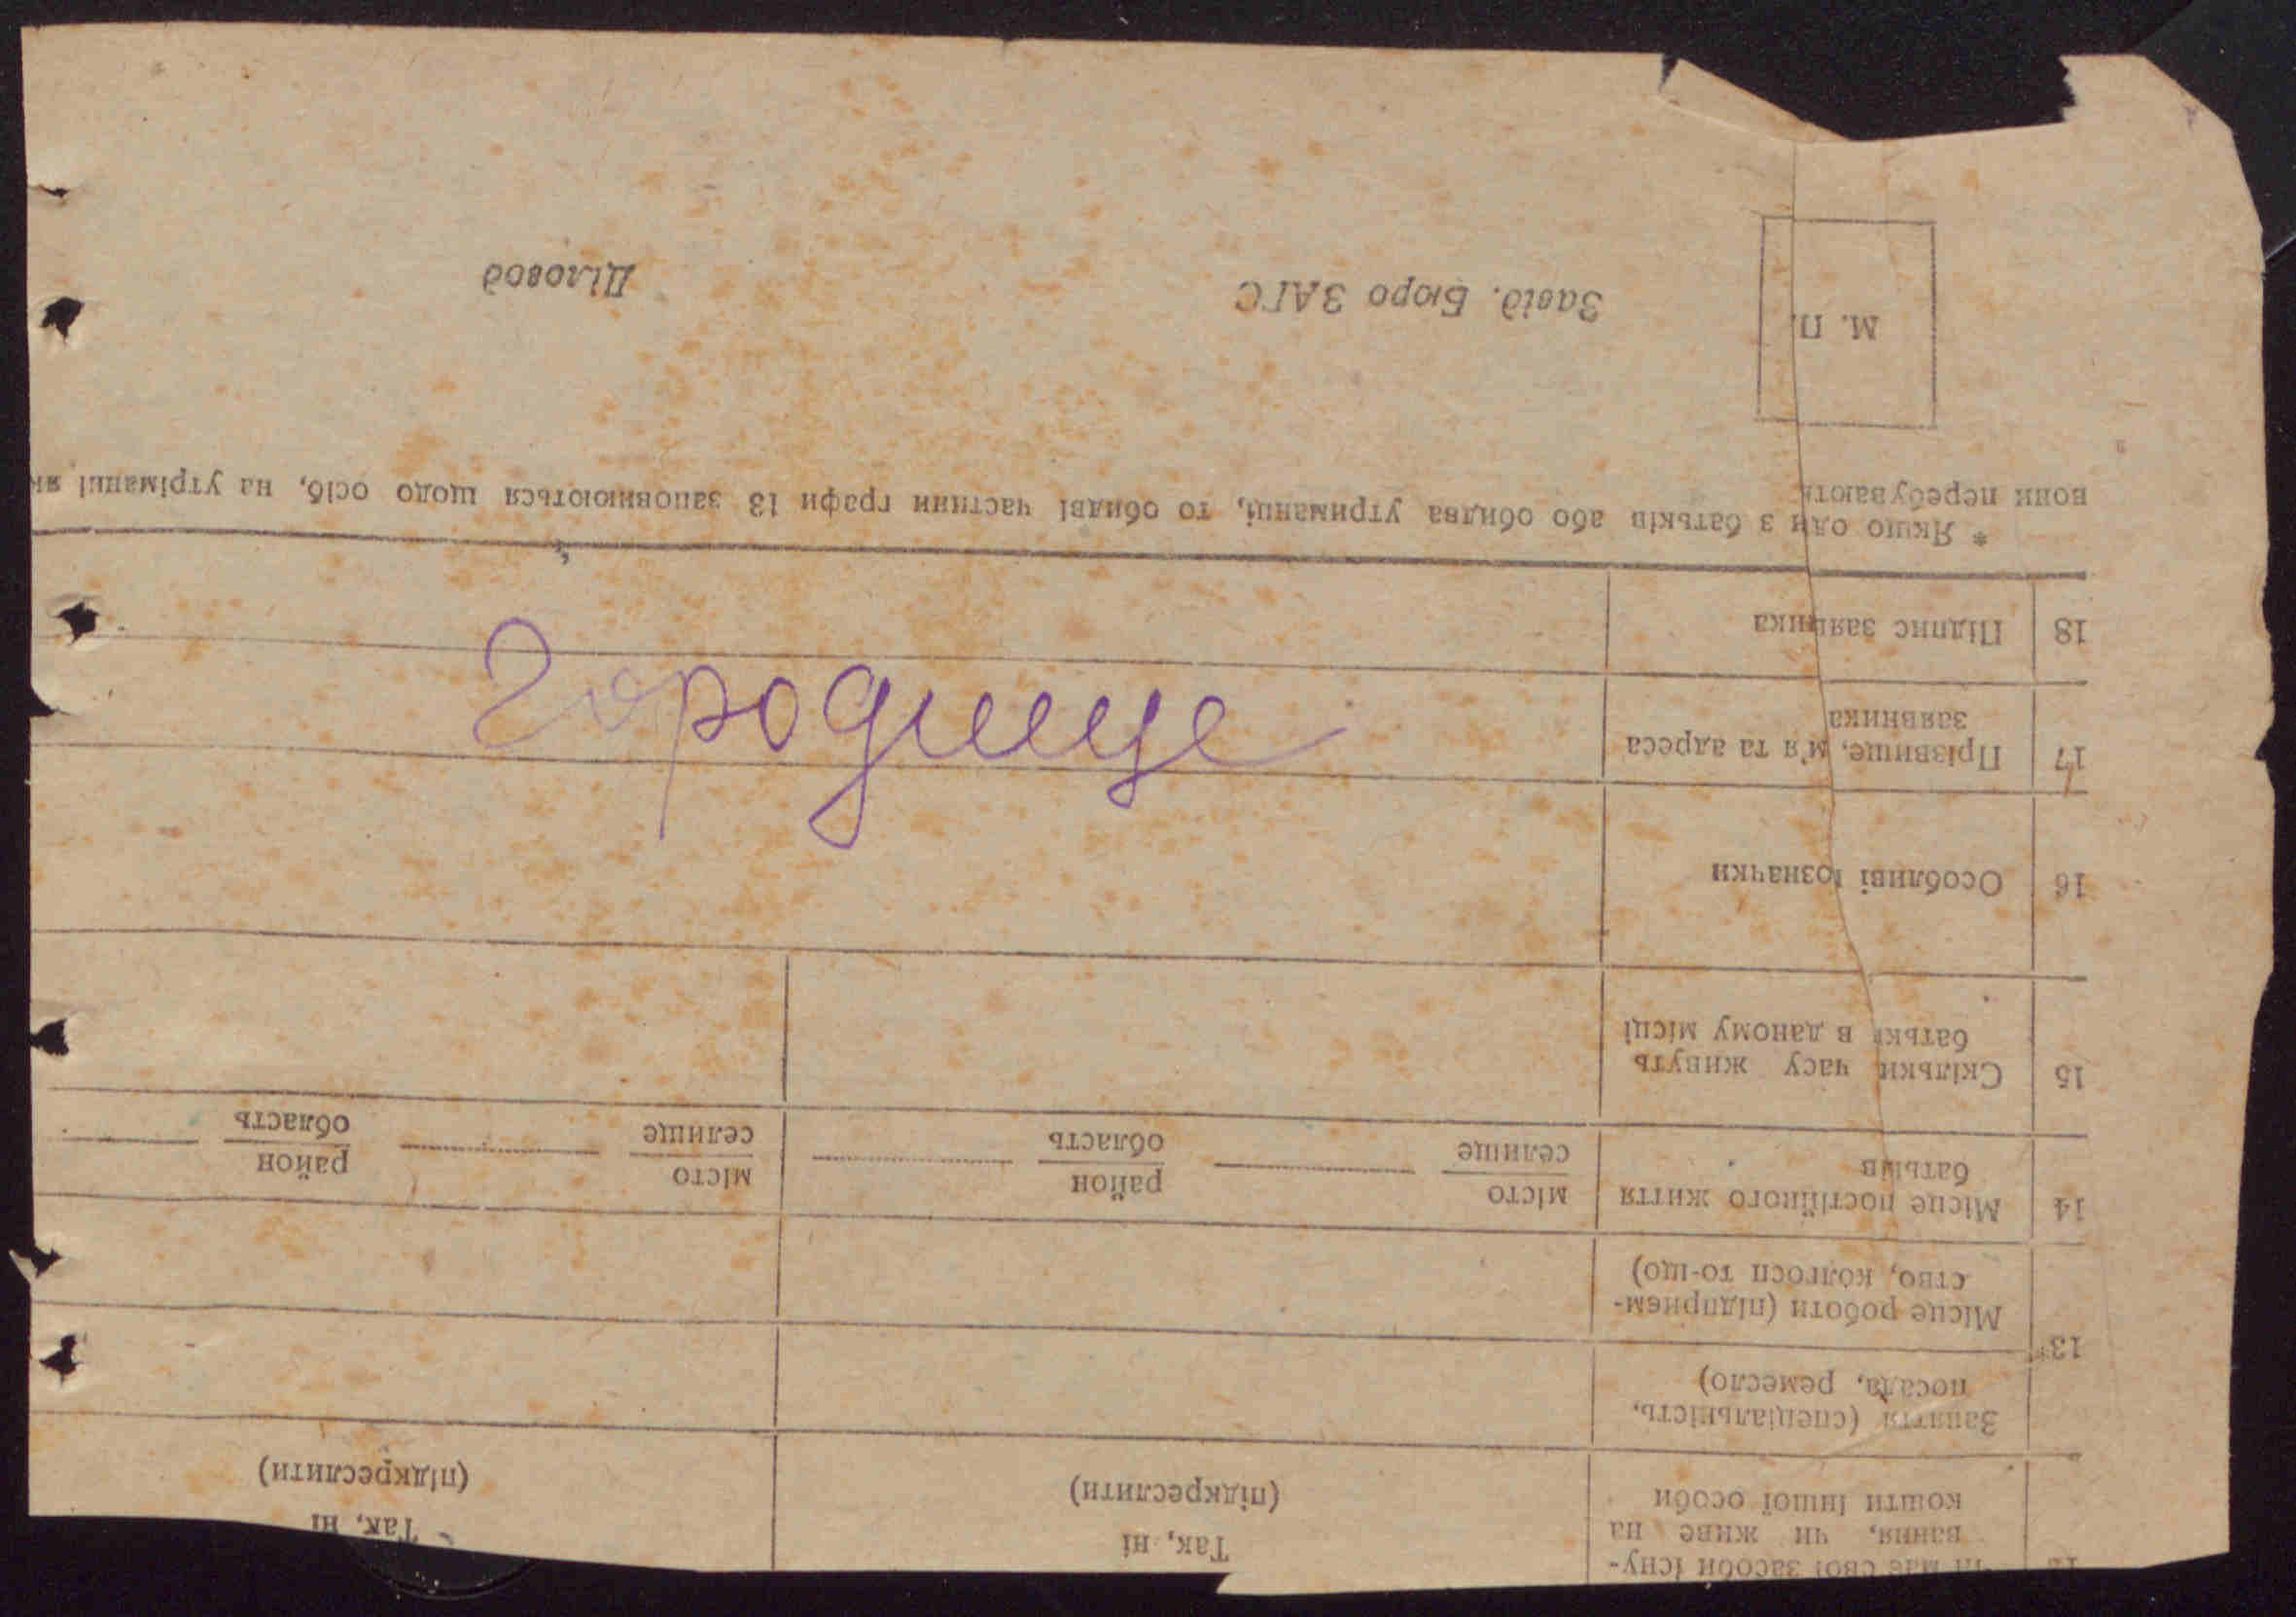 12 Чи має свої засоби існу-
вання, чи живе на
кошти іншої особи
Так, ні
(підкреслити)
Так, ні
(підкреслити)
13*
Заняття (спеціальність,
посада, ремесло)
Місце роботи (підприєм-
ство, колгосп то-що)
14 Місце постійного життя
батьків
місто
селище
район
область
місто
селище
район
область
15 Скільки часу живуть
батьки в даному місці
16 Особливі позначки
17 Прізвище, ім'я та адреса
заявника
18 Підпис заявника
* Якщо один з батьків або обидва утриманці, то обидві частини графи 13 заповнюються щодо осіб, на утріманці як
вони перебувають
М. П.
Завід. Бюро ЗАГС
Діловод
Городище